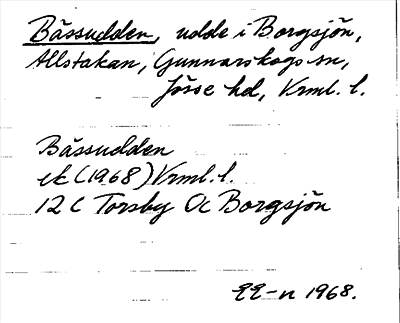 Båssudden, udde i Borgsjön,
Allstakan, Gunnarskogs sn,
Jösse hd, Vrml. l.
Båssudden
ek (1968) Vrml. l.
12 C Torsby Oc Borgsjön
EE-n 1968.